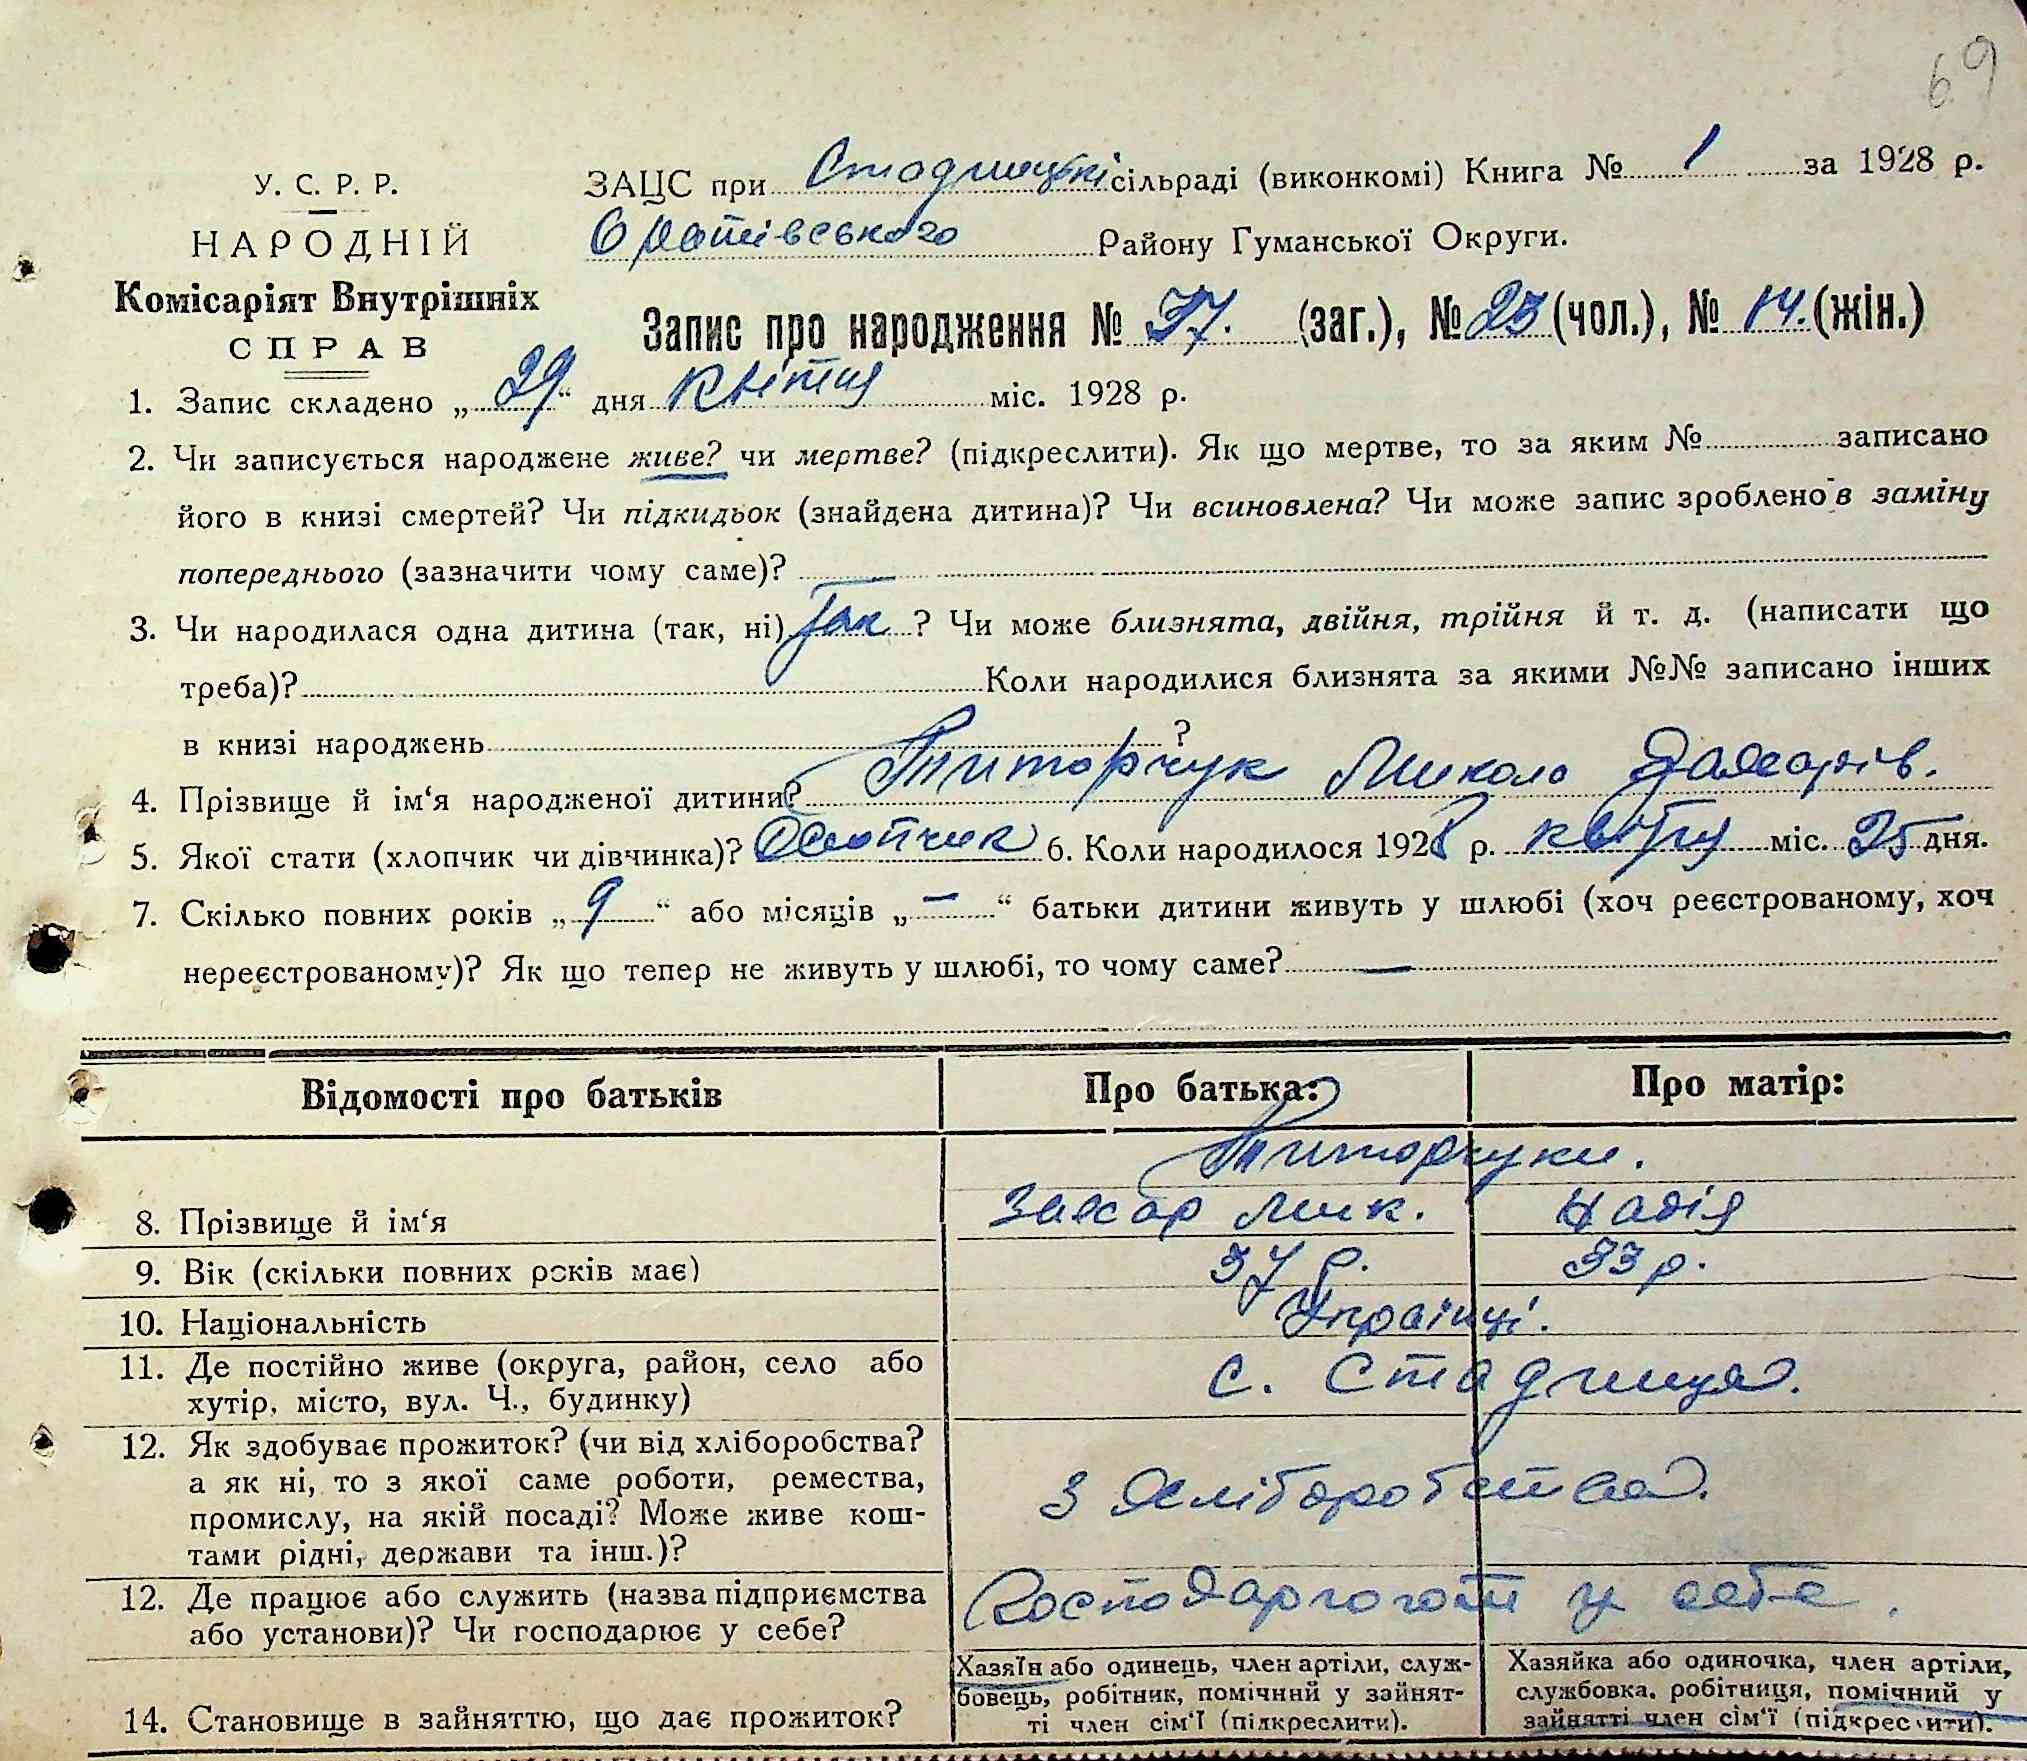 69
У. С. Р. Р.
НАРОДНІЙ
Комісаріят Внутрішніх
СПРАВ
ЗАЦС при Стадницькі сільраді (виконкомі) Книга № 1 за 1928 р.
Оратівського Району Гуманської Округи.
Запис про народження № 37. (заг.), № 23 (чол.), № 14. (жін.)
1. Запис складено „ 29 “ дня квітня міс. 1928 р.
2. Чи записується народжене живе? чи мертве? (підкреслити). Як що мертве, то за яким № записано
його в книзі смертей? Чи підкидьок (знайдена дитина)? Чи всиновлена? Чи може запис зроблено в заміну
попереднього (зазначити чому саме)?
3. Чи народилася одна дитина (так, ні) Так ? Чи може близнята, двійня, трійня й т. д. (написати що
треба)? Коли народилися близнята за якими №№ записано інших
в книзі народжень ?
4. Прізвище й ім‘я народженої дитини? Титорчук Микола Захарів.
5. Якої стати (хлопчик чи дівчинка)? Хлопчик 6. Коли народилося 1928 р. квітня міс. 25 дня.
7. Скілько повних років „ 9 “ або місяців „ — “ батьки дитини живуть у шлюбі (хоч реєстрованому, хоч
нереєстрованому)? Як що тепер не живуть у шлюбі, то чому саме? —
Відомості про батьків Про батька: Про матір:
Титорчуки.
8. Прізвище й ім‘я Захар Мик. Надія
9. Вік (скільки повних років має) 37 р. 33 р.
10. Національність Українці.
11. Де постійно живе (округа, район, село або
хутір, місто, вул. Ч., будинку) с. Стадниця.
12. Як здобуває прожиток? (чи від хліборобства?
а як ні, то з якої саме роботи, ремества,
промислу, на якій посаді? Може живе кош-
тами рідні, держави та інш.)? З хліборобства.
12. Де працює або служить (назва підприємства
або установи)? Чи господарює у себе? Господарюють у себе.
14. Становище в зайняттю, що дає прожиток?
Хазяїн або одинець, член артіли, служ-
бовець, робітник, помічний у зайнят-
ті член сім‘ї (підкреслити).
Хазяйка або одиночка, член артіли,
службовка, робітниця, помічний у
зайнятті член сім‘ї (підкреслити).